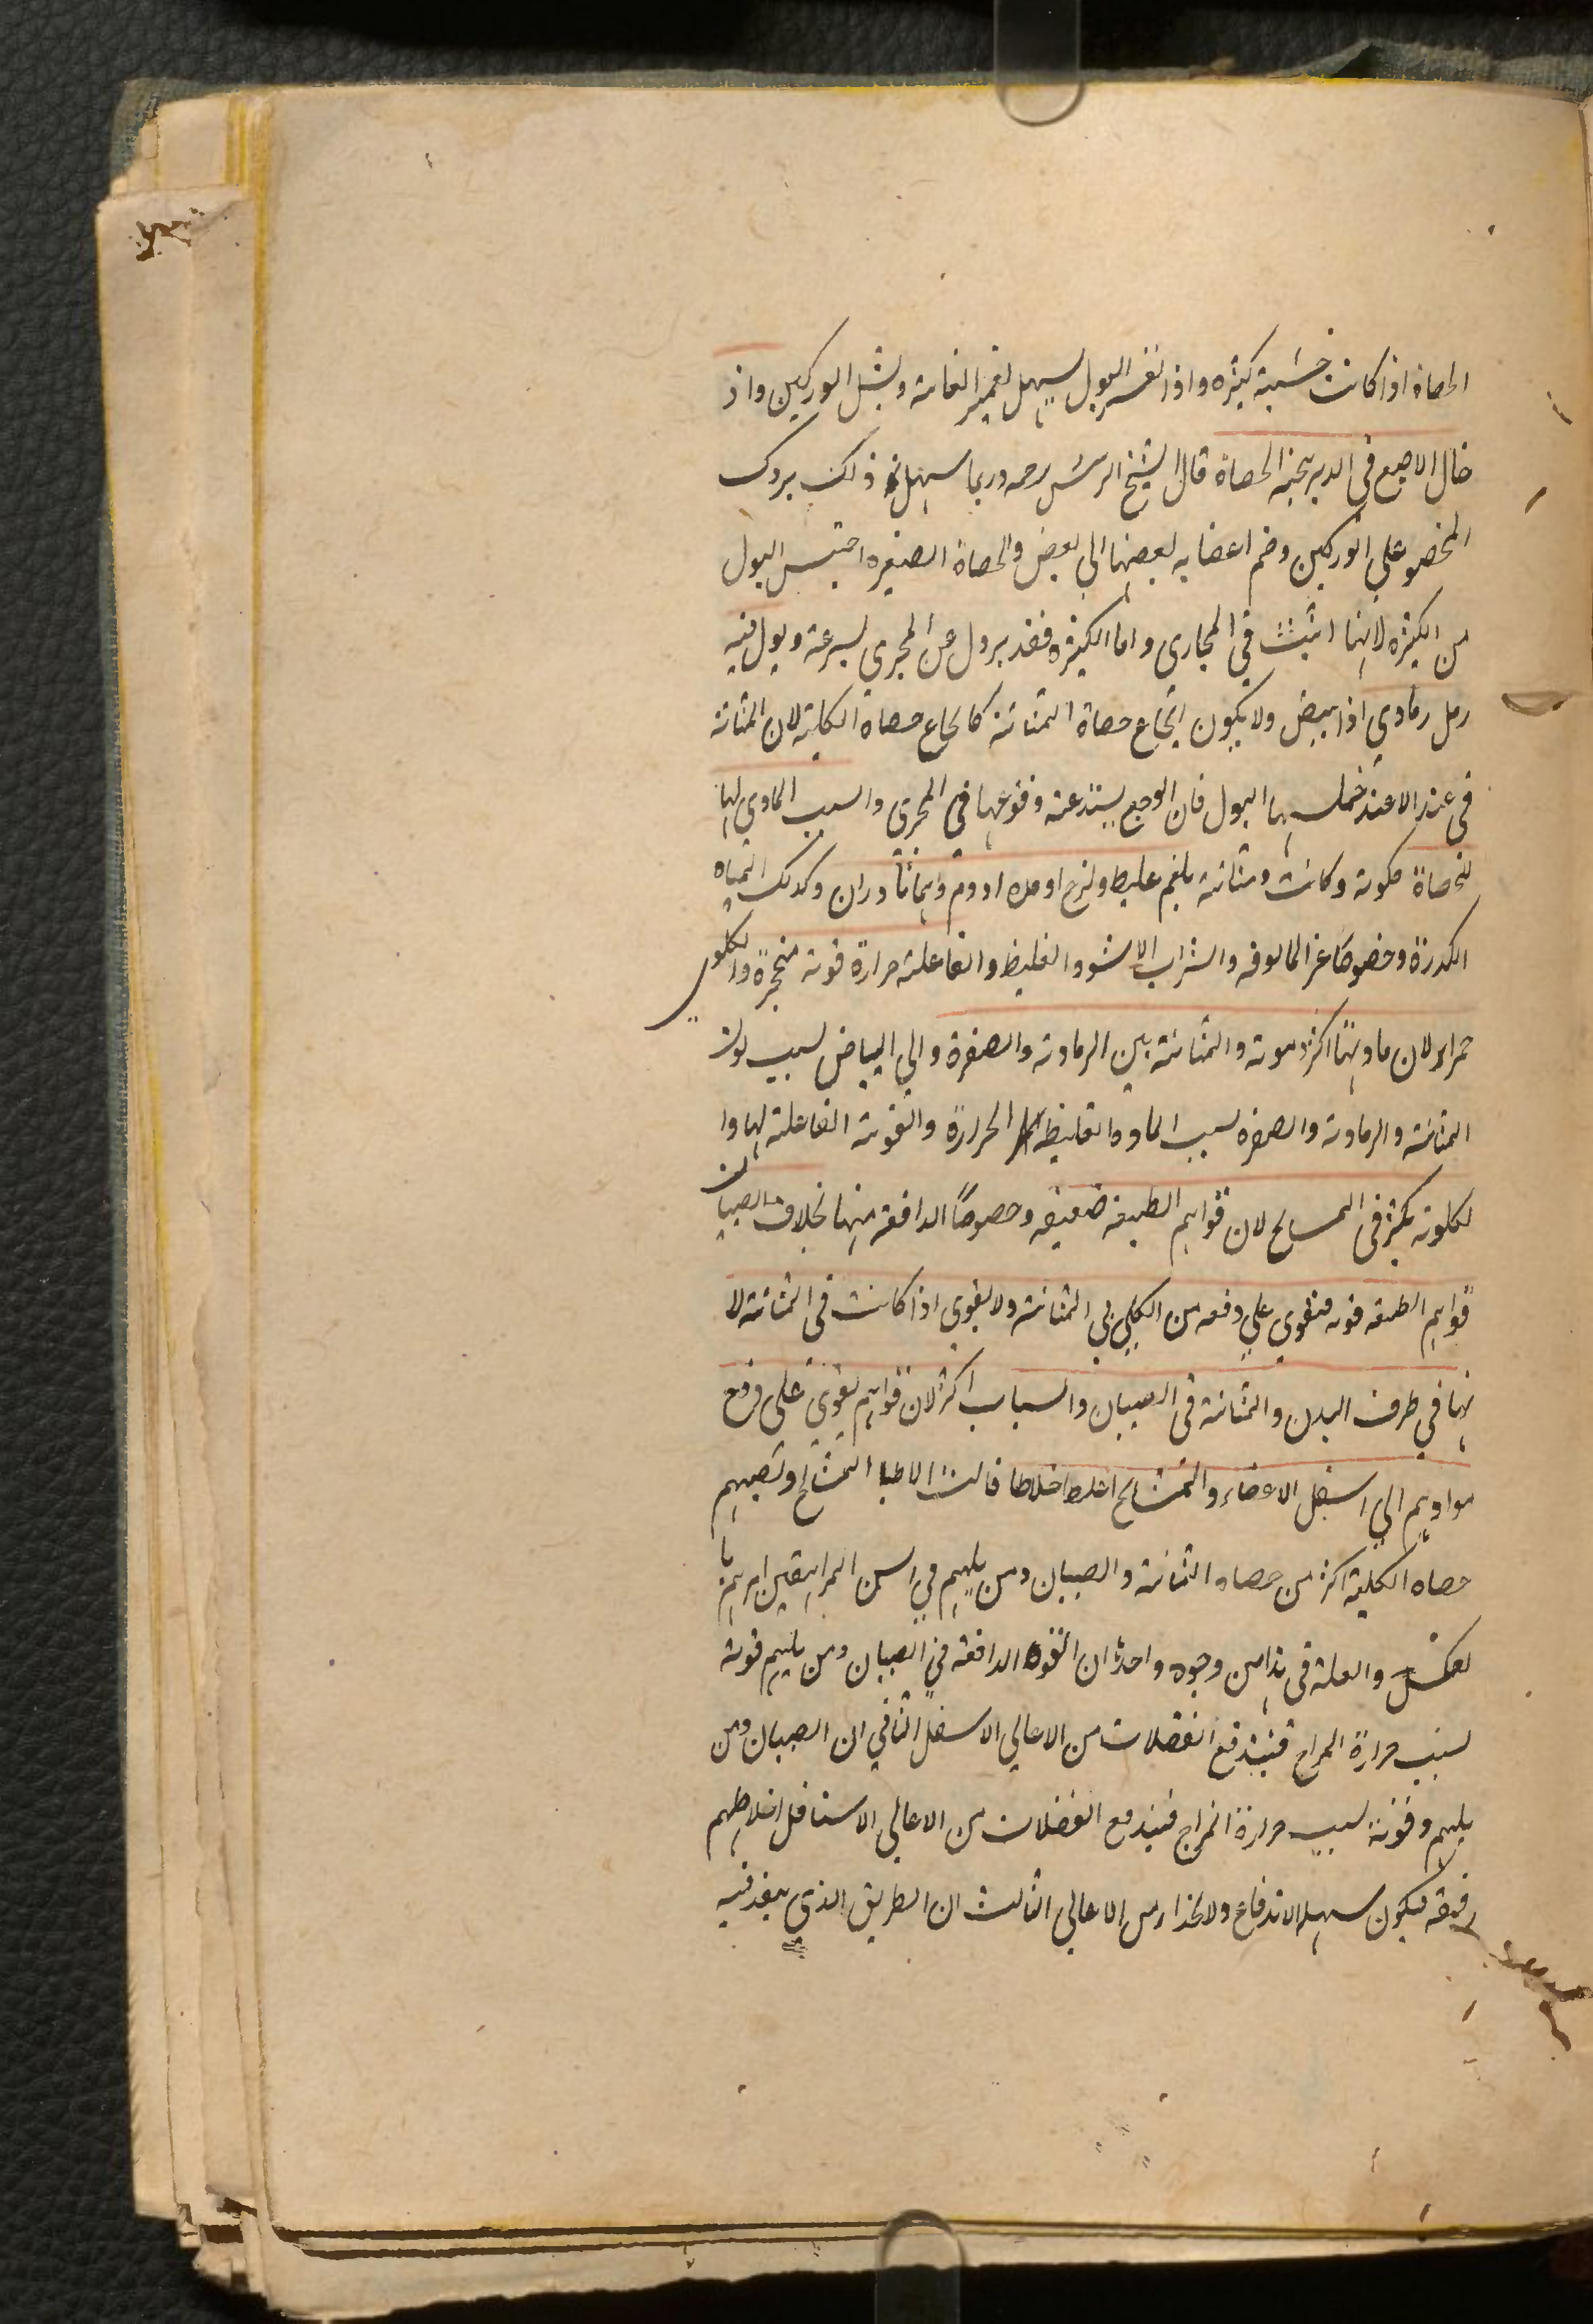 الحصاة اذا كانت خشبية كثيره واذا تفسر البول يسهل بغمير العانة وبشل الوركين واذ
خال الاصبع في الدبر ينجيه الحصاة قال الشيخ الرئس رحمه وربما سهله ذلك بروك
المخصو علي الوركين وضم اعضايه بعضها الي بعض والحصاة الصغيره احتبس البول
من الكثيره لانها اثبت في المجاري واما الكبيره فقد يزول عن المجري بسرعة وبول فيه
رمل رمادي اذا بيض ولا يكون ايجاع حصاة المثانة كايجاع حصاة الكلية لان المثانة
في عند الا عند بها البول فان الوجع يشتد عنه وقوعها في المجري والسبب المادي لها
للحصاة كلوية وكانت ومثانية بلغم غليظ ولزج او مده او دم وايماثا دران وكذلك المياه
الكدرة وخصوصا غير المالوفه والشراب الاسود والغليظ والفاعلة حرارة قوية منحجرة والكلوي
حمراء لان مادتها اكثر دموية والمثانية بين الرمادية والصفرة والي البياض بسبب لون
المثانة والرمادية والصفره بسبب الماده الغليظه الحرارة والقوية الفاعلة لها وا
لكلوية يكثر في المسايح لان قواهم الطبيعة ضعيفه وخصوصا الدافعة منها بخلاف الصبيان
قواهم الطبيعة قوية فتقوي علي دفعه من الكلي الي المثانة ولا يقوي اذا كانت في المثانة لا
نها في طرف البدن والمثانة في الصبيان والسباب اكثر لان قواهم يقوي علي دفع
موادهم الي اسفل الاعضاء والمشايح اغلط اخلاطا قالت الاطبا المشايخ وتصيبهم
حصاه الكلية اكثر من حصاه المثانة والصبيان ومن يليهم في السن المراهقين امرهم با
لعكس والعلة في هذا من وجوه واحدها ان القوه الدافعة في الصبيان ومن يليهم قوية
بسبب حرارة المزاج فيندفع الفضلات من الاعالي الاسفل الثاني ان الصبيان ومن
يليهم وقوية بسبب حرارة المزاج فيندفع الفضلات من الاعالي الاسافل اخلاطهم
رقيقه فيكون سهلة الاندفاع ولانحدار من الاعالي الثالث ان الطريق الذي ينفذ فيه